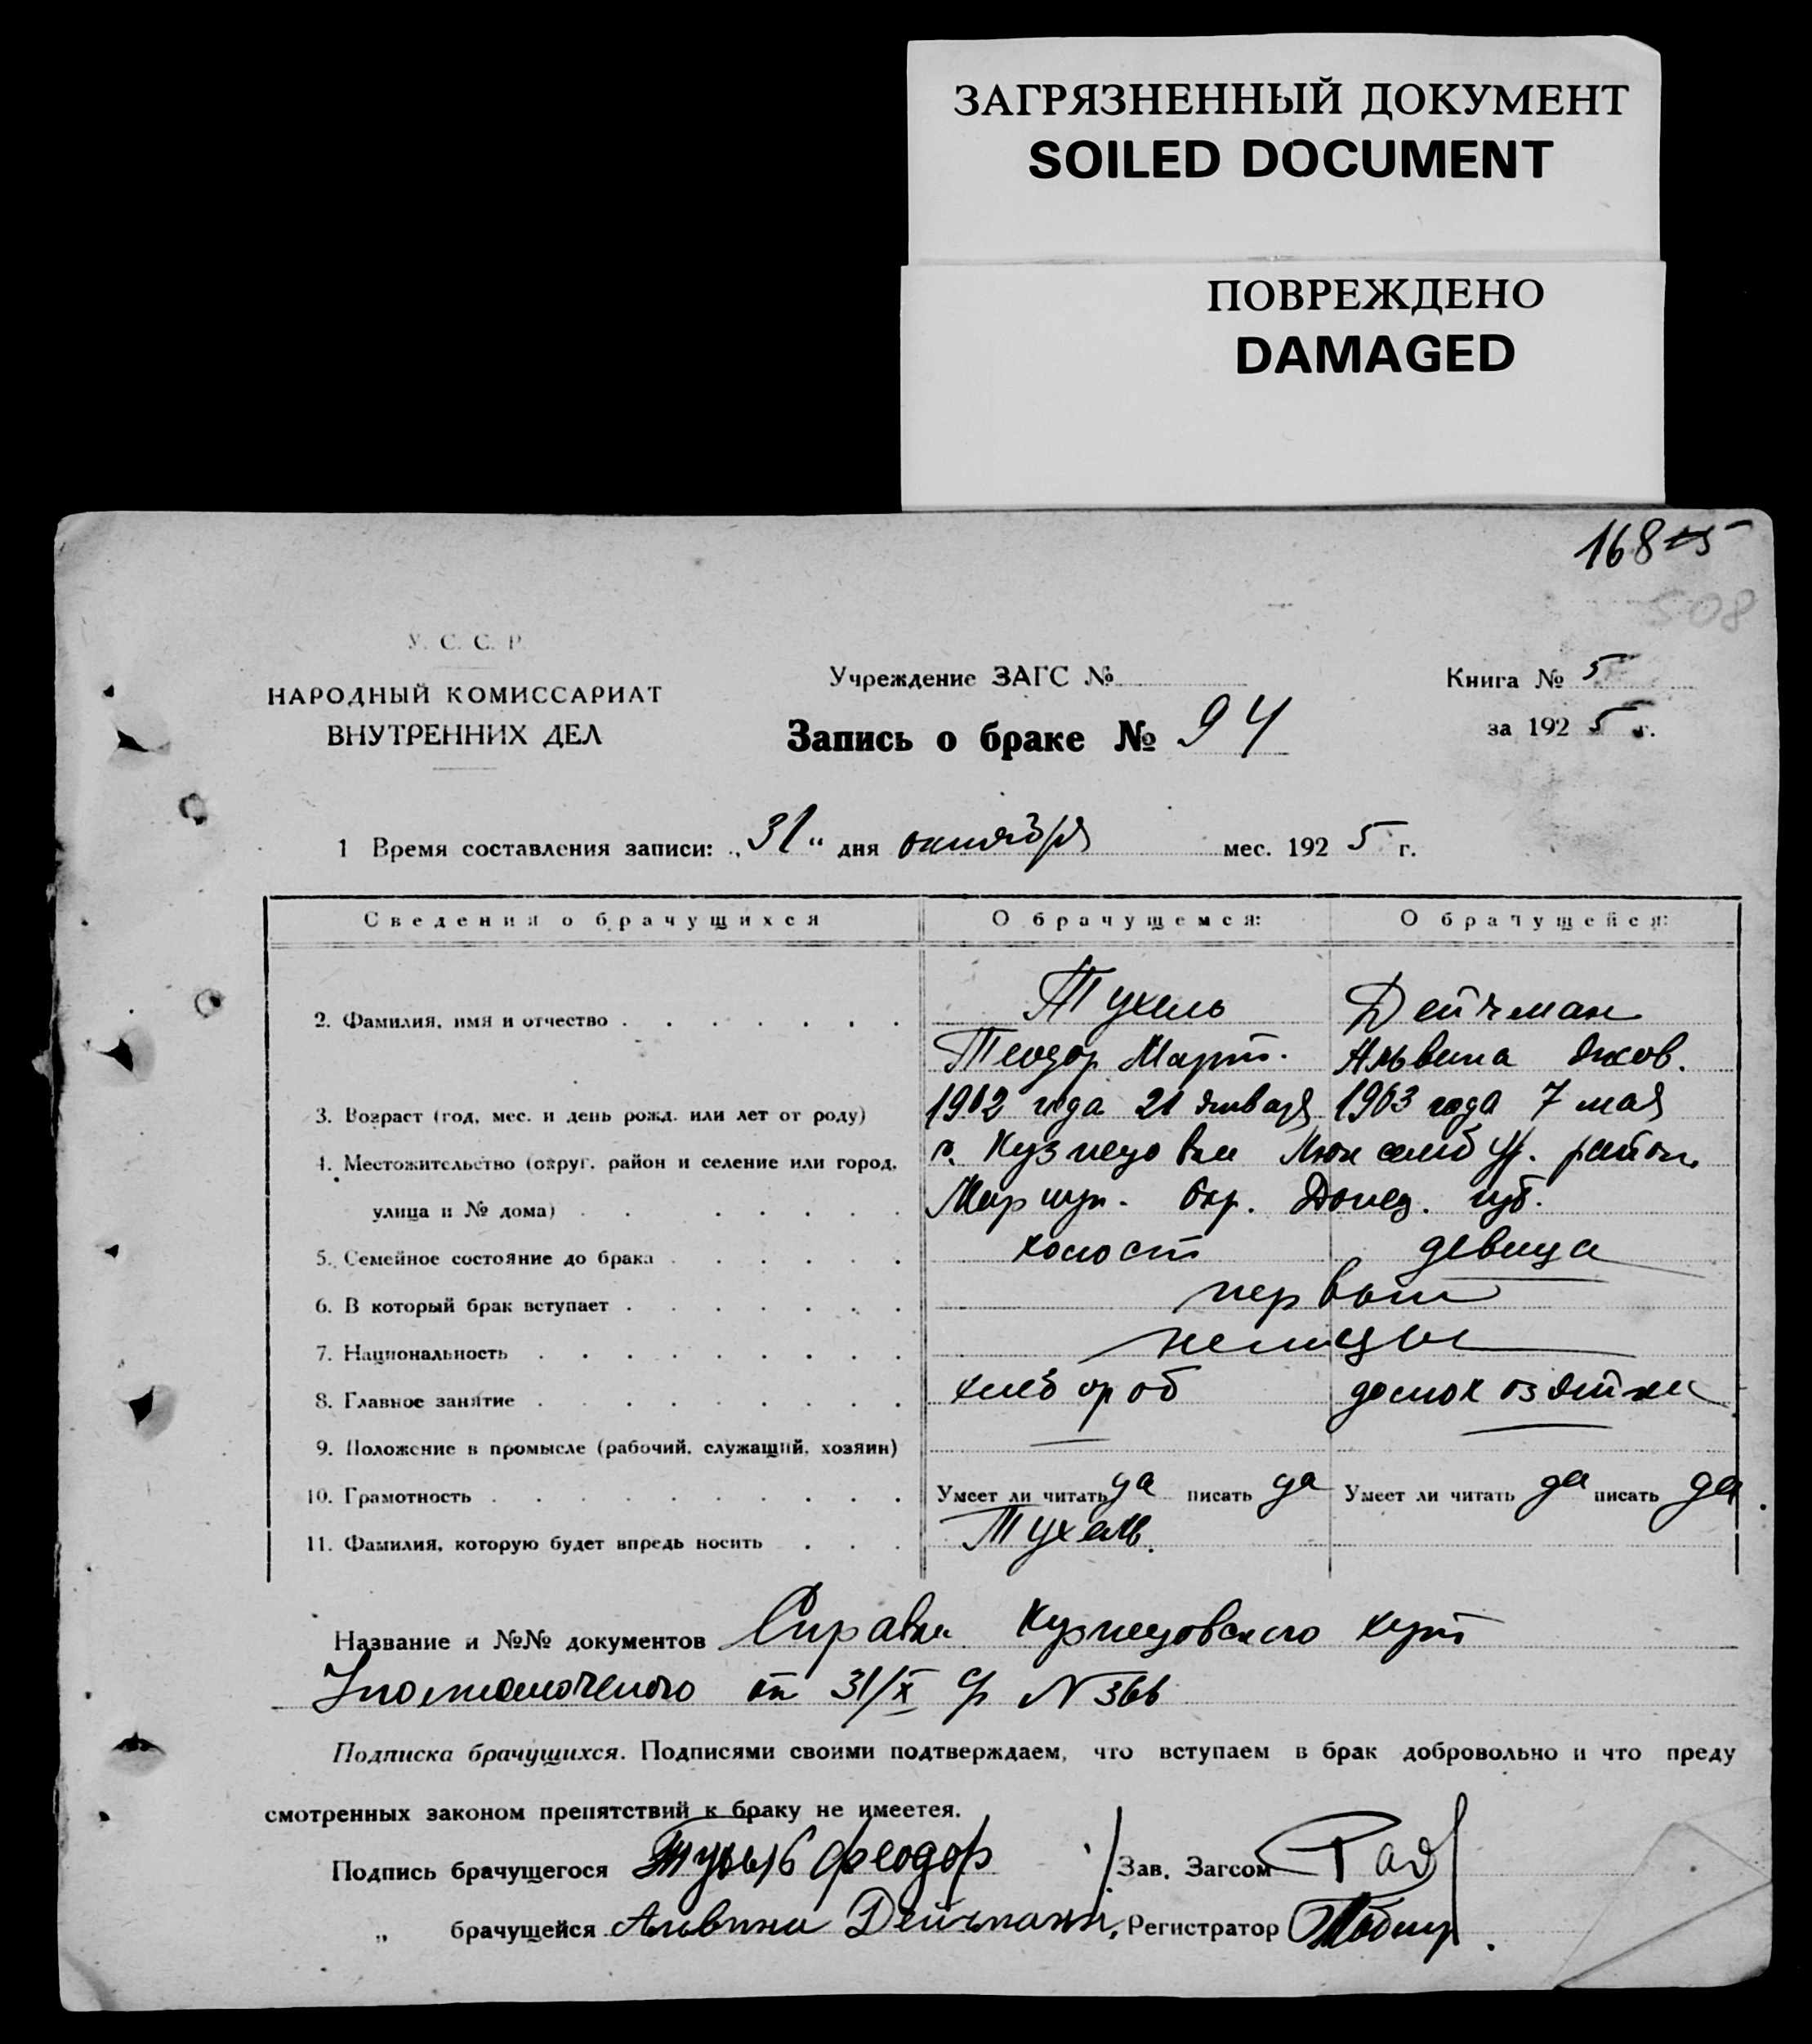 ЗАГРЯЗНЕННЫЙ ДОКУМЕНТ
SOILED DOCUMENT
ПОВРЕЖДЕНО
DAMAGED
168
508
У. С. С. Р.
НАРОДНЫЙ КОМИССАРИАТ
ВНУТРЕННИХ ДЕЛ
Учреждение ЗАГС №
Запись о браке № 94
Книга № 5
за 1925 г.
1 Время составления записи: „31" дня октября мес. 1925 г.
Сведения о брачущихся О брачущемся: О брачущейся:
2. Фамилия, имя и отчество Тухель Дейчман
Теодор Март. Альвина Яков.
3. Возраст (год, мес. и день рожд. или лет от роду) 1902 года 21 января 1903 года 7 мая
4. Местожительство (округ, район и селение или город, Кузнецовка район
улица и № дома) Мариуп. Окр. Донец. губ.
5. Семейное состояние до брака холост девица
6. В который брак вступает первый
7. Национальность немцы
8. Главное занятие хлебороб домохозяйка
9. Положение в промысле (рабочий, служащий, хозяин)
10. Грамотность Умеет ли читать да писать да Умеет ли читать да писать да
11. Фамилия, которую будет впредь носить Тухель.
Название и №№ документов Справка Кузнецовского
Уполномоченого от 31/X N 366
Подписка брачущихся. Подписями своими подтверждаем, что вступаем в брак добровольно и что преду
смотренных законом препятствий к браку не имеется.
Подпись брачущегося Феодор Зав. Загсом
„ брачущейся Альвина Дейчманн, Регистратор